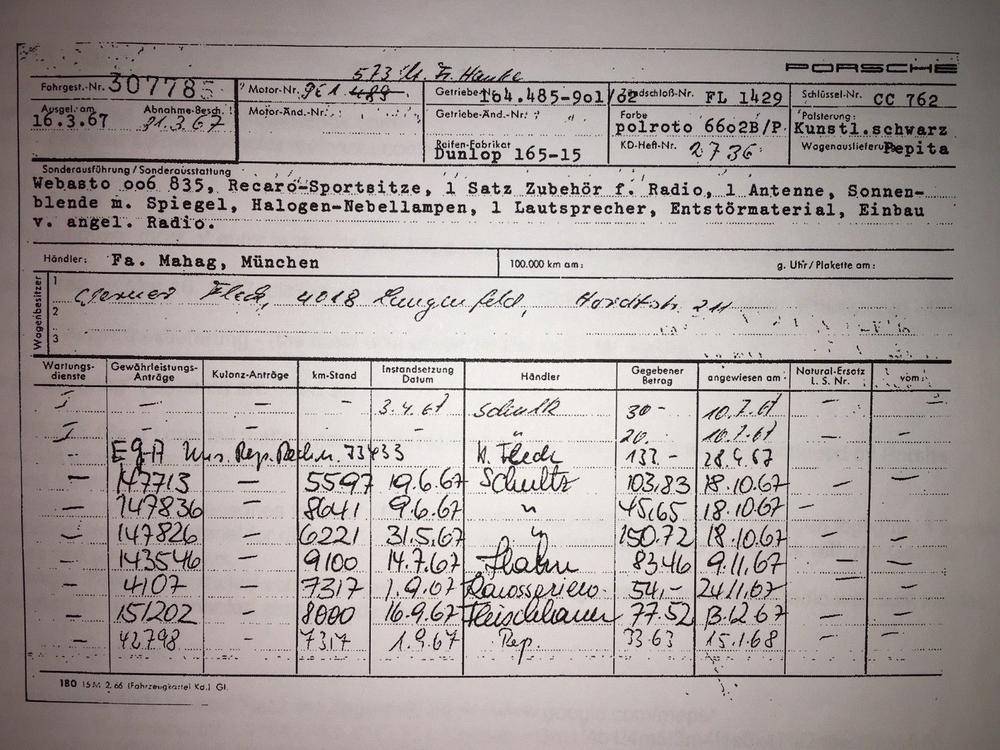 573
PORSCHE
Fahrgest.-Nr. 307785 Motor-Nr. 961 489 Getriebe-Nr. 104.485-901/02 Zündschloß-Nr. FL 1429 Schlüssel-Nr. CC 762
Ausgel. am Abnahme-Besch. Motor-Änd.-Nr. Getriebe-Änd.-Nr. Farbe Polsterung:
16.3.67 31.3.67 polroto 6602B/P Kunstl.schwarz
Reifen-Fabrikat KD-Heft-Nr. 2736 Wagenauslieferung Pepita
Dunlop 165-15
Sonderausführung / Sonderausstattung
Webasto 006 835, Recaro-Sportsitze, 1 Satz Zubehör f. Radio, 1 Antenne, Sonnen-
blende m. Spiegel, Halogen-Nebellampen, 1 Lautsprecher, Entstörmaterial, Einbau
v. angel. Radio.
Händler: Fa. Mahag, München 100.000 km am: g. Uhr / Plakette am:
Wagenbesitzer
1
Werner Fleck, 4018 Langenfeld, Hardtstr. 211
2
3
Wartungs-dienste Gewährleistungs-Anträge Kulanz-Anträge km-Stand Instandsetzung Datum Händler Gegebener Betrag angewiesen am: Natural-Ersatz L. S. Nr. vom:
I – – – 3.4.67 Schultz 30- 10.7.67 – –
I – – – – " 20.- 10.7.67 – –
73433 H. Fleck 133 - 28.4.67
– 147713 – 5597 19.6.67 Schultz 103,83 18.10.67 – –
– 147836 – 8041 9.6.67 " 45,65 18.10.67 – –
– 147826 – 6221 31.5.67 " 150.72 18.10.67 – –
– 143546 – 9100 14.7.67 Hahn 8346 9.11.67 – –
– 4107 – 7317 1.9.67 54,- 24.11.67 – –
– 151202 – 8000 16.9.67 Fleischhauer 77.52 13.12.67 – –
– 42798 – 7317 1.9.67 Rep. 33.63 15.1.68 – –
180 15 M 2. 66 (Fahrzeugkartei Kd.) Gl.